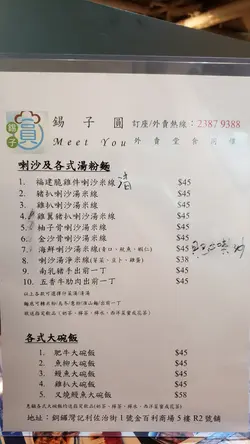 錫子
圓
錫子圓
訂座/外賣熱線：2387 9388
Meet You
外賣堂食同價
喇沙及各式湯粉麵
1. 福建脆雞件喇沙米線 $45
2. 豬扒喇沙湯米線 $45
3. 雞扒喇沙湯米線 $45
4. 雞翼豬扒喇沙湯米線 $45
5. 柚子骨喇沙湯米線 $45
6. 金沙骨喇沙湯米線 $45
7. 海鮮喇沙湯米線 $45
8. 喇沙湯淨米線 $38
9. 南乳豬手出前一丁 $45
10. 五香牛肋肉出前一丁 $45
各式大碗飯
1. 肥牛大碗飯 $45
2. 魚柳大碗飯 $45
3. 鰻魚大碗飯 $45
4. 雞扒大碗飯 $45
5. 叉燒鰻魚大碗飯 $58
地址：銅鑼灣記利佐治街1號金百利商場5樓R2號舖